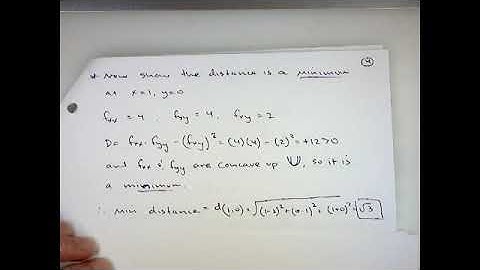 4
* Now show the distance is a minimum
at x=1, y=0
fxx = 4, fyy = 4, fxy = 2
D = fxx · fyy − (fxy)² = (4)(4) − (2)² = +12>0
and fxx & fyy are concave up ∪, so it is
a minimum.
∴ Min distance = d(1,0) = √((1-2)²+(0-1)²+(1+0)²) = √3